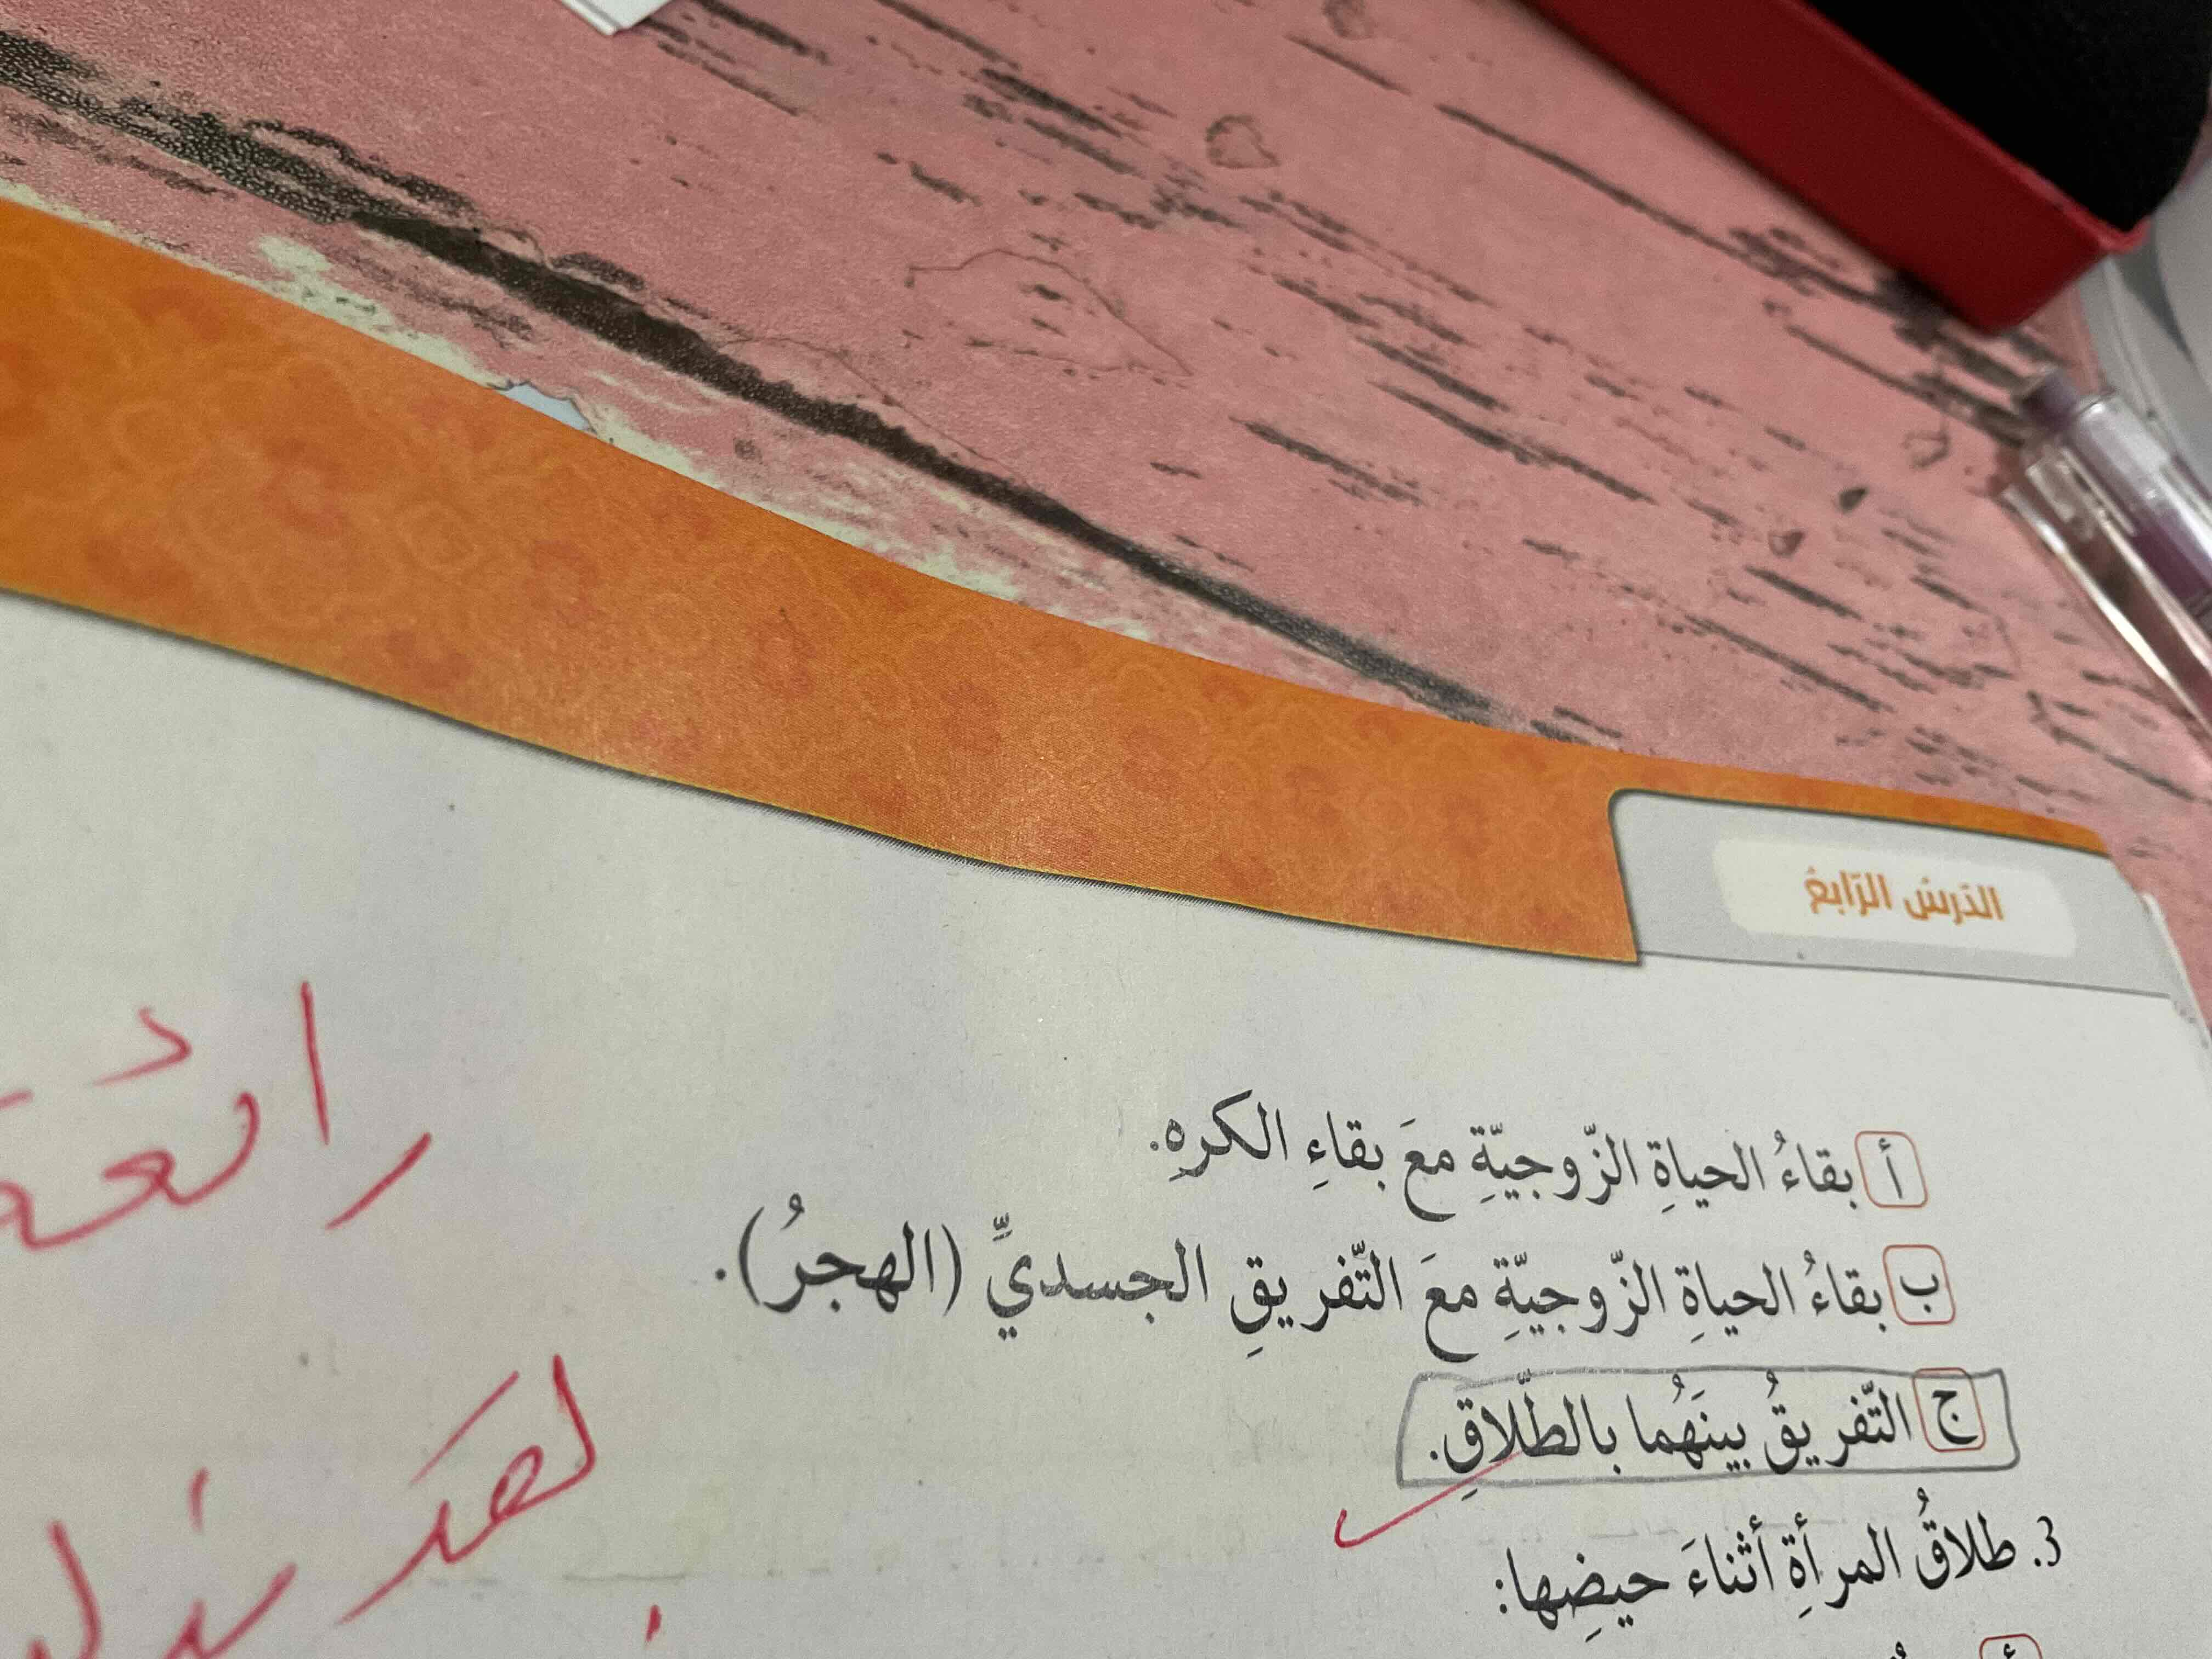 الدّرسُ الرّابعُ
أ بقاءُ الحياةِ الزّوجيّةِ معَ بقاءِ الكرهِ.
ب بقاءُ الحياةِ الزّوجيّةِ معَ التّفريقِ الجسديِّ (الهجرُ).
ج التّفريقُ بينَهُما بالطّلاقِ.
3. طلاقُ المرأةِ أثناءَ حيضِها:
أ
رائعة